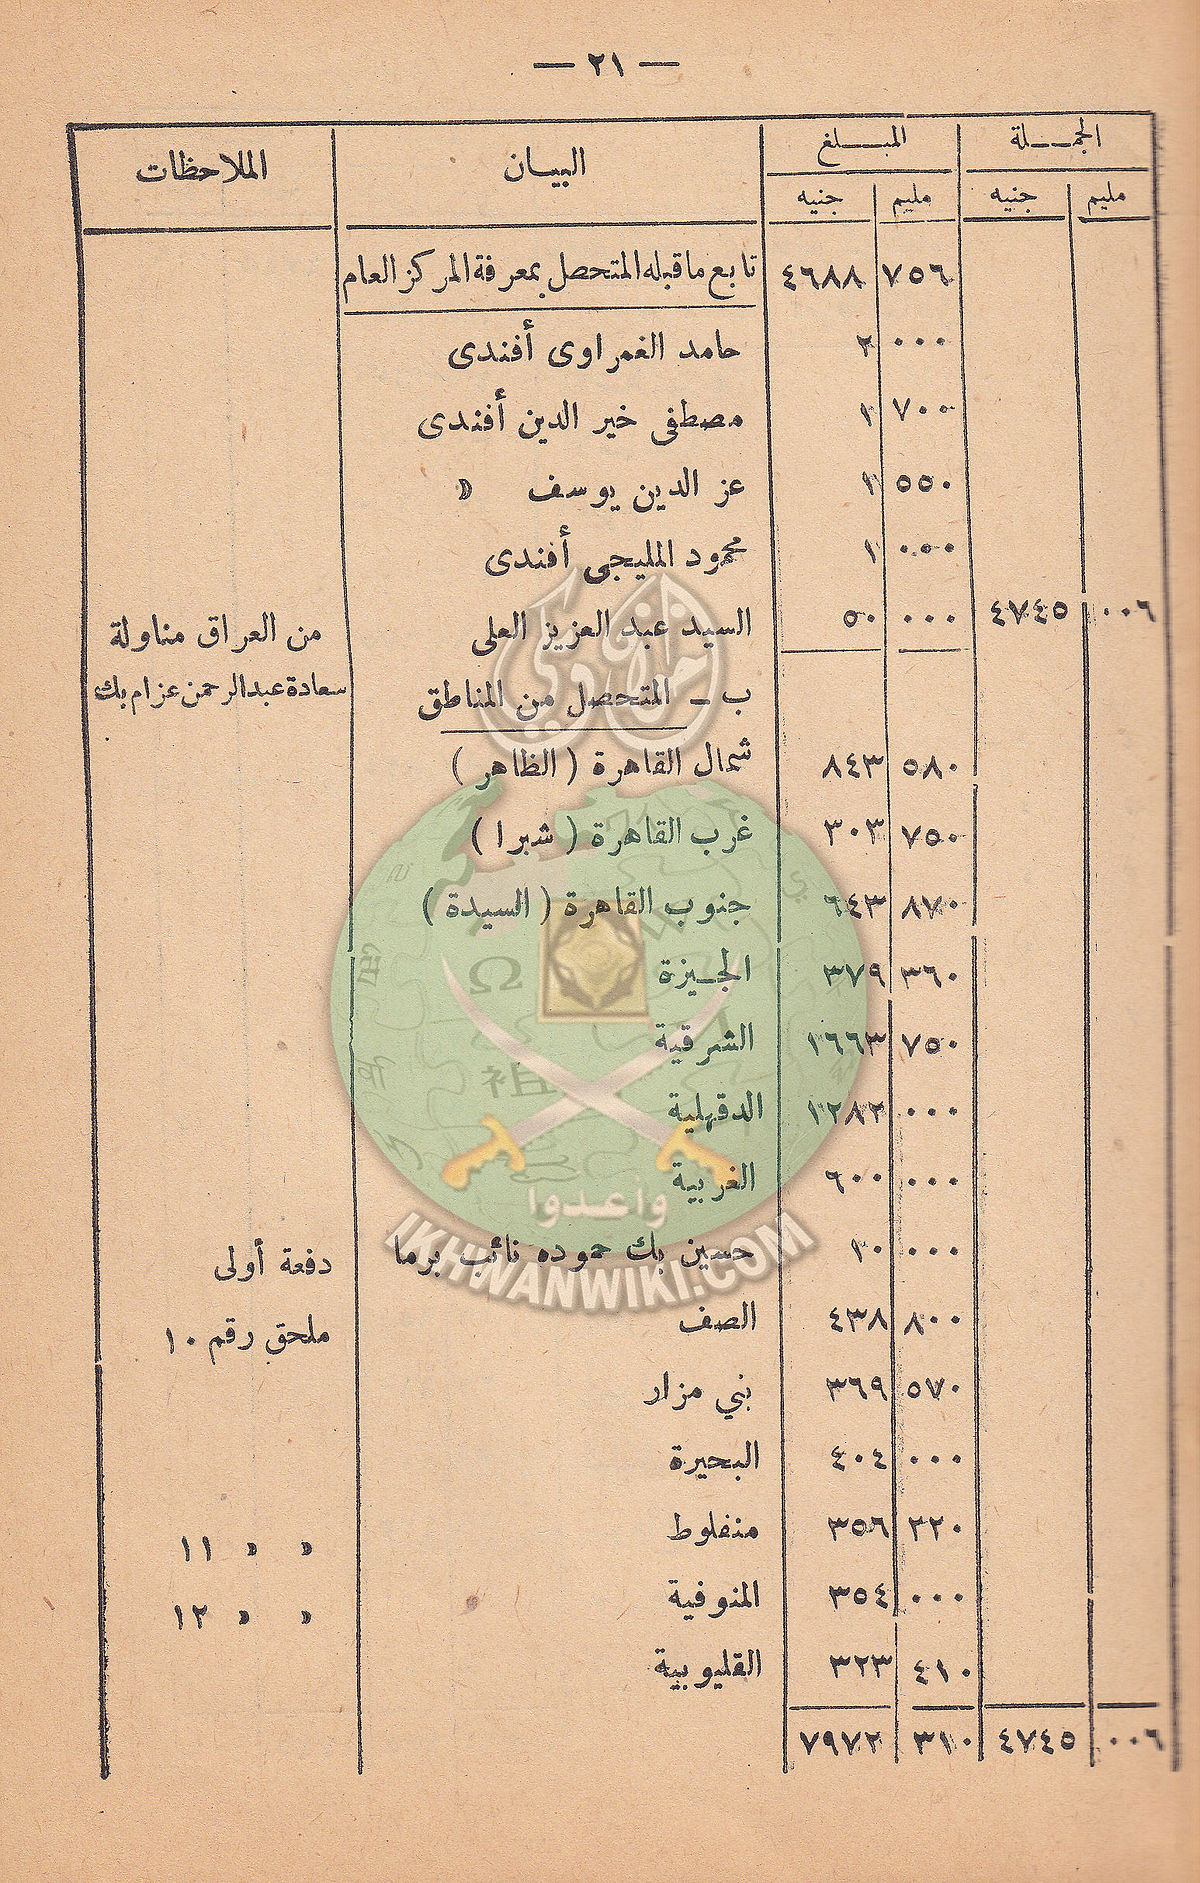 — ٢١ —
الجمـــلة المبـــلغ البيـان الملاحظات
مليم جنيه مليم جنيه
٧٥٦ ٤٦٨٨ تابع ماقبله المتحصل بمعرفة المركز العام
٠٠٠ ٢ حامد الغمراوى أفندى
٧٠٠ ١ مصطفى خير الدين أفندى
٥٥٠ ١ عز الدين يوسف »
٠٠٠ ١ محمود المليجى أفندى
٠٠٦ ٤٧٤٥ ٠٠٠ ٥٠ السيد عبد العزيز العلى من العراق مناولة
سعادة عبدالرحمن عزام بك
ب - المتحصل من المناطق
٥٨٠ ٨٤٣ شمال القاهرة ( الظاهر )
٧٥٠ ٣٠٣ غرب القاهرة ( شبرا )
٨٧٠ ٦٤٣ جنوب القاهرة ( السيدة )
٣٦٠ ٣٧٩ الجـيزة
٧٥٠ ١٦٦٣ الشرقية
٠٠٠ ١٢٨٢ الدقهلية
٠٠٠ ٦٠٠ الغربية
وأعدوا
٠٠٠ ١٠ حسين بك حموده نائب برما دفعة أولى
IKHWANWIKI.COM
٨٠٠ ٤٣٨ الصف ملحق رقم ١٠
٥٧٠ ٣٦٩ بني مزار
٠٠٠ ٤٠٤ البحيرة
٢٢٠ ٣٥٦ منفلوط » » ١١
٠٠٠ ٣٥٤ المنوفية » » ١٢
٤١٠ ٣٢٣ القليوبية
٠٠٦ ٤٧٤٥ ٣١٠ ٧٩٧٢